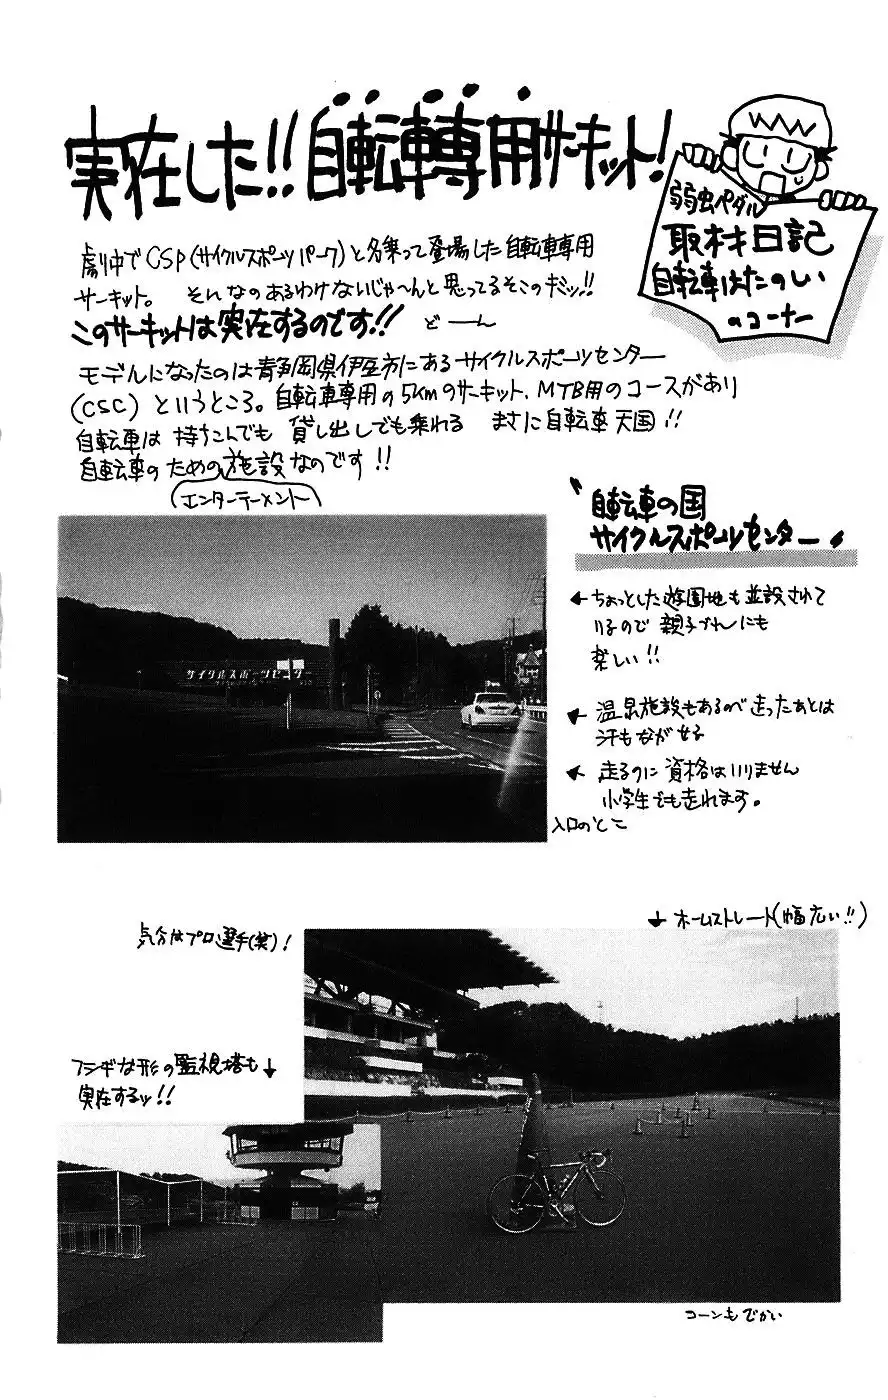 実在した!!自転車専用サーキット!
弱虫ペダル
取材日記
自転車はたのしい
のコーナー
劇中でCSP(サイクルスポーツパーク)と名乗って登場した自転車専用
サーキット。 そんなのあるわけないじゃ〜んと思ってるそこのキミッ!!
このサーキットは実在するのです!! どーん
モデルになったのは静岡県伊豆市にあるサイクルスポーツセンター
(CSC)というところ。自転車専用の5kmのサーキット、MTB用のコースがあり
自転車は持ちこんでも 貸し出しでも乗れる まさに自転車天国!!
自転車のための施設なのです!!
(エンターテーメント)
〝自転車の国
サイクルスポーツセンター〟
←ちょっとした遊園地も並設されて
いるので親子づれにも
楽しい!!
←温泉施設もあるので走ったあとは
汗もながせる
←走るのに資格はいりません
小学生でも走れます。
サイクルスポーツセンター
入口のとこ
↓ホームストレート(幅広い!!)
気分はプロ選手(笑)!
フシギな形の監視塔も↓
実在するッ!!
コーンもでかい